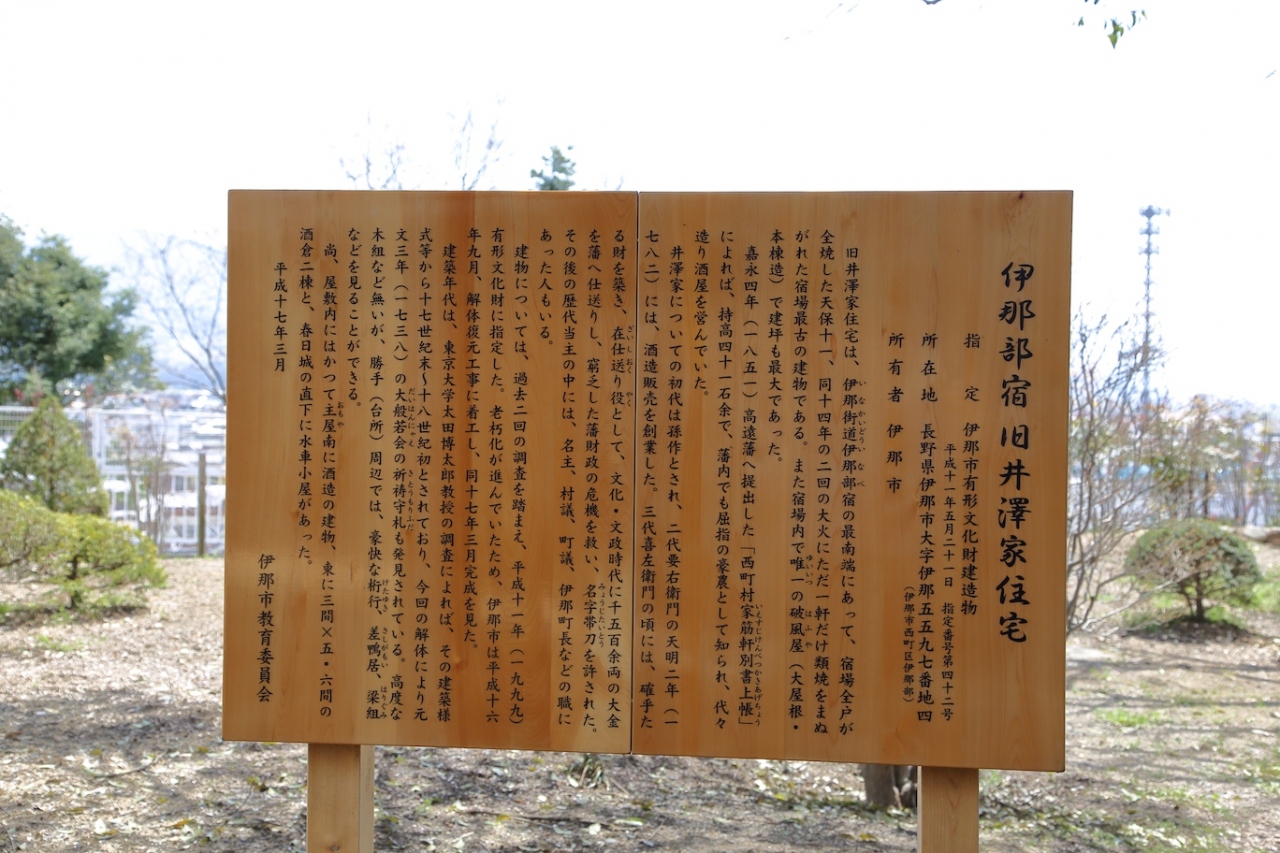 伊那部宿旧井澤家住宅
指　定　伊那市有形文化財建造物
平成十一年五月二十一日　指定番号第四十二号
所在地　長野県伊那市大字伊那五五九七番地四
（伊那市西町区伊那部）
所有者　伊那市
旧井澤家住宅は、伊那街道伊那部宿の最南端にあって、宿場全戸が
全焼した天保十一、同十四年の二回の大火にただ一軒だけ類焼をまぬ
がれた宿場最古の建物である。また宿場内で唯一の破風屋（大屋根・
本棟造）で建坪も最大であった。
嘉永四年（一八五一）高遠藩へ提出した「西町村家筋軒別書上帳」
によれば、持高四十一石余で、藩内でも屈指の豪農として知られ、代々
造り酒屋を営んでいた。
井澤家についての初代は孫作とされ、二代要右衛門の天明二年（一
七八二）には、酒造販売を創業した。三代喜左衛門の頃には、確乎た
る財を築き、在仕送り役として、文化・文政時代に千五百余両の大金
を藩へ仕送りし、窮乏した藩財政の危機を救い、名字帯刀を許された。
その後の歴代当主の中には、名主、村議、町議、伊那町長などの職に
あった人もいる。
建物については、過去二回の調査を踏まえ、平成十一年（一九九九）
有形文化財に指定した。老朽化が進んでいたため、伊那市は平成十六
年九月、解体復元工事に着工し、同十七年三月完成を見た。
建築年代は、東京大学太田博太郎教授の調査によれば、その建築様
式等から十七世紀末～十八世紀初とされており、今回の解体により元
文三年（一七三八）の大般若会の祈祷守札も発見されている。高度な
木組など無いが、勝手（台所）周辺では、豪快な桁行、差鴨居、梁組
などを見ることができる。
尚、屋敷内にはかつて主屋南に酒造の建物、東に三間×五・六間の
酒倉二棟と、春日城の直下に水車小屋があった。
平成十七年三月
伊那市教育委員会